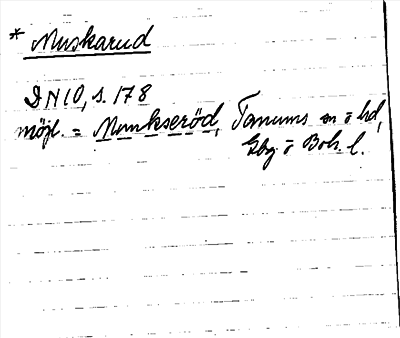 * Muskarud
DN 10, s. 178
möjl. = Munkseröd, Tanums sn o hd,
Gbg o Boh. l.